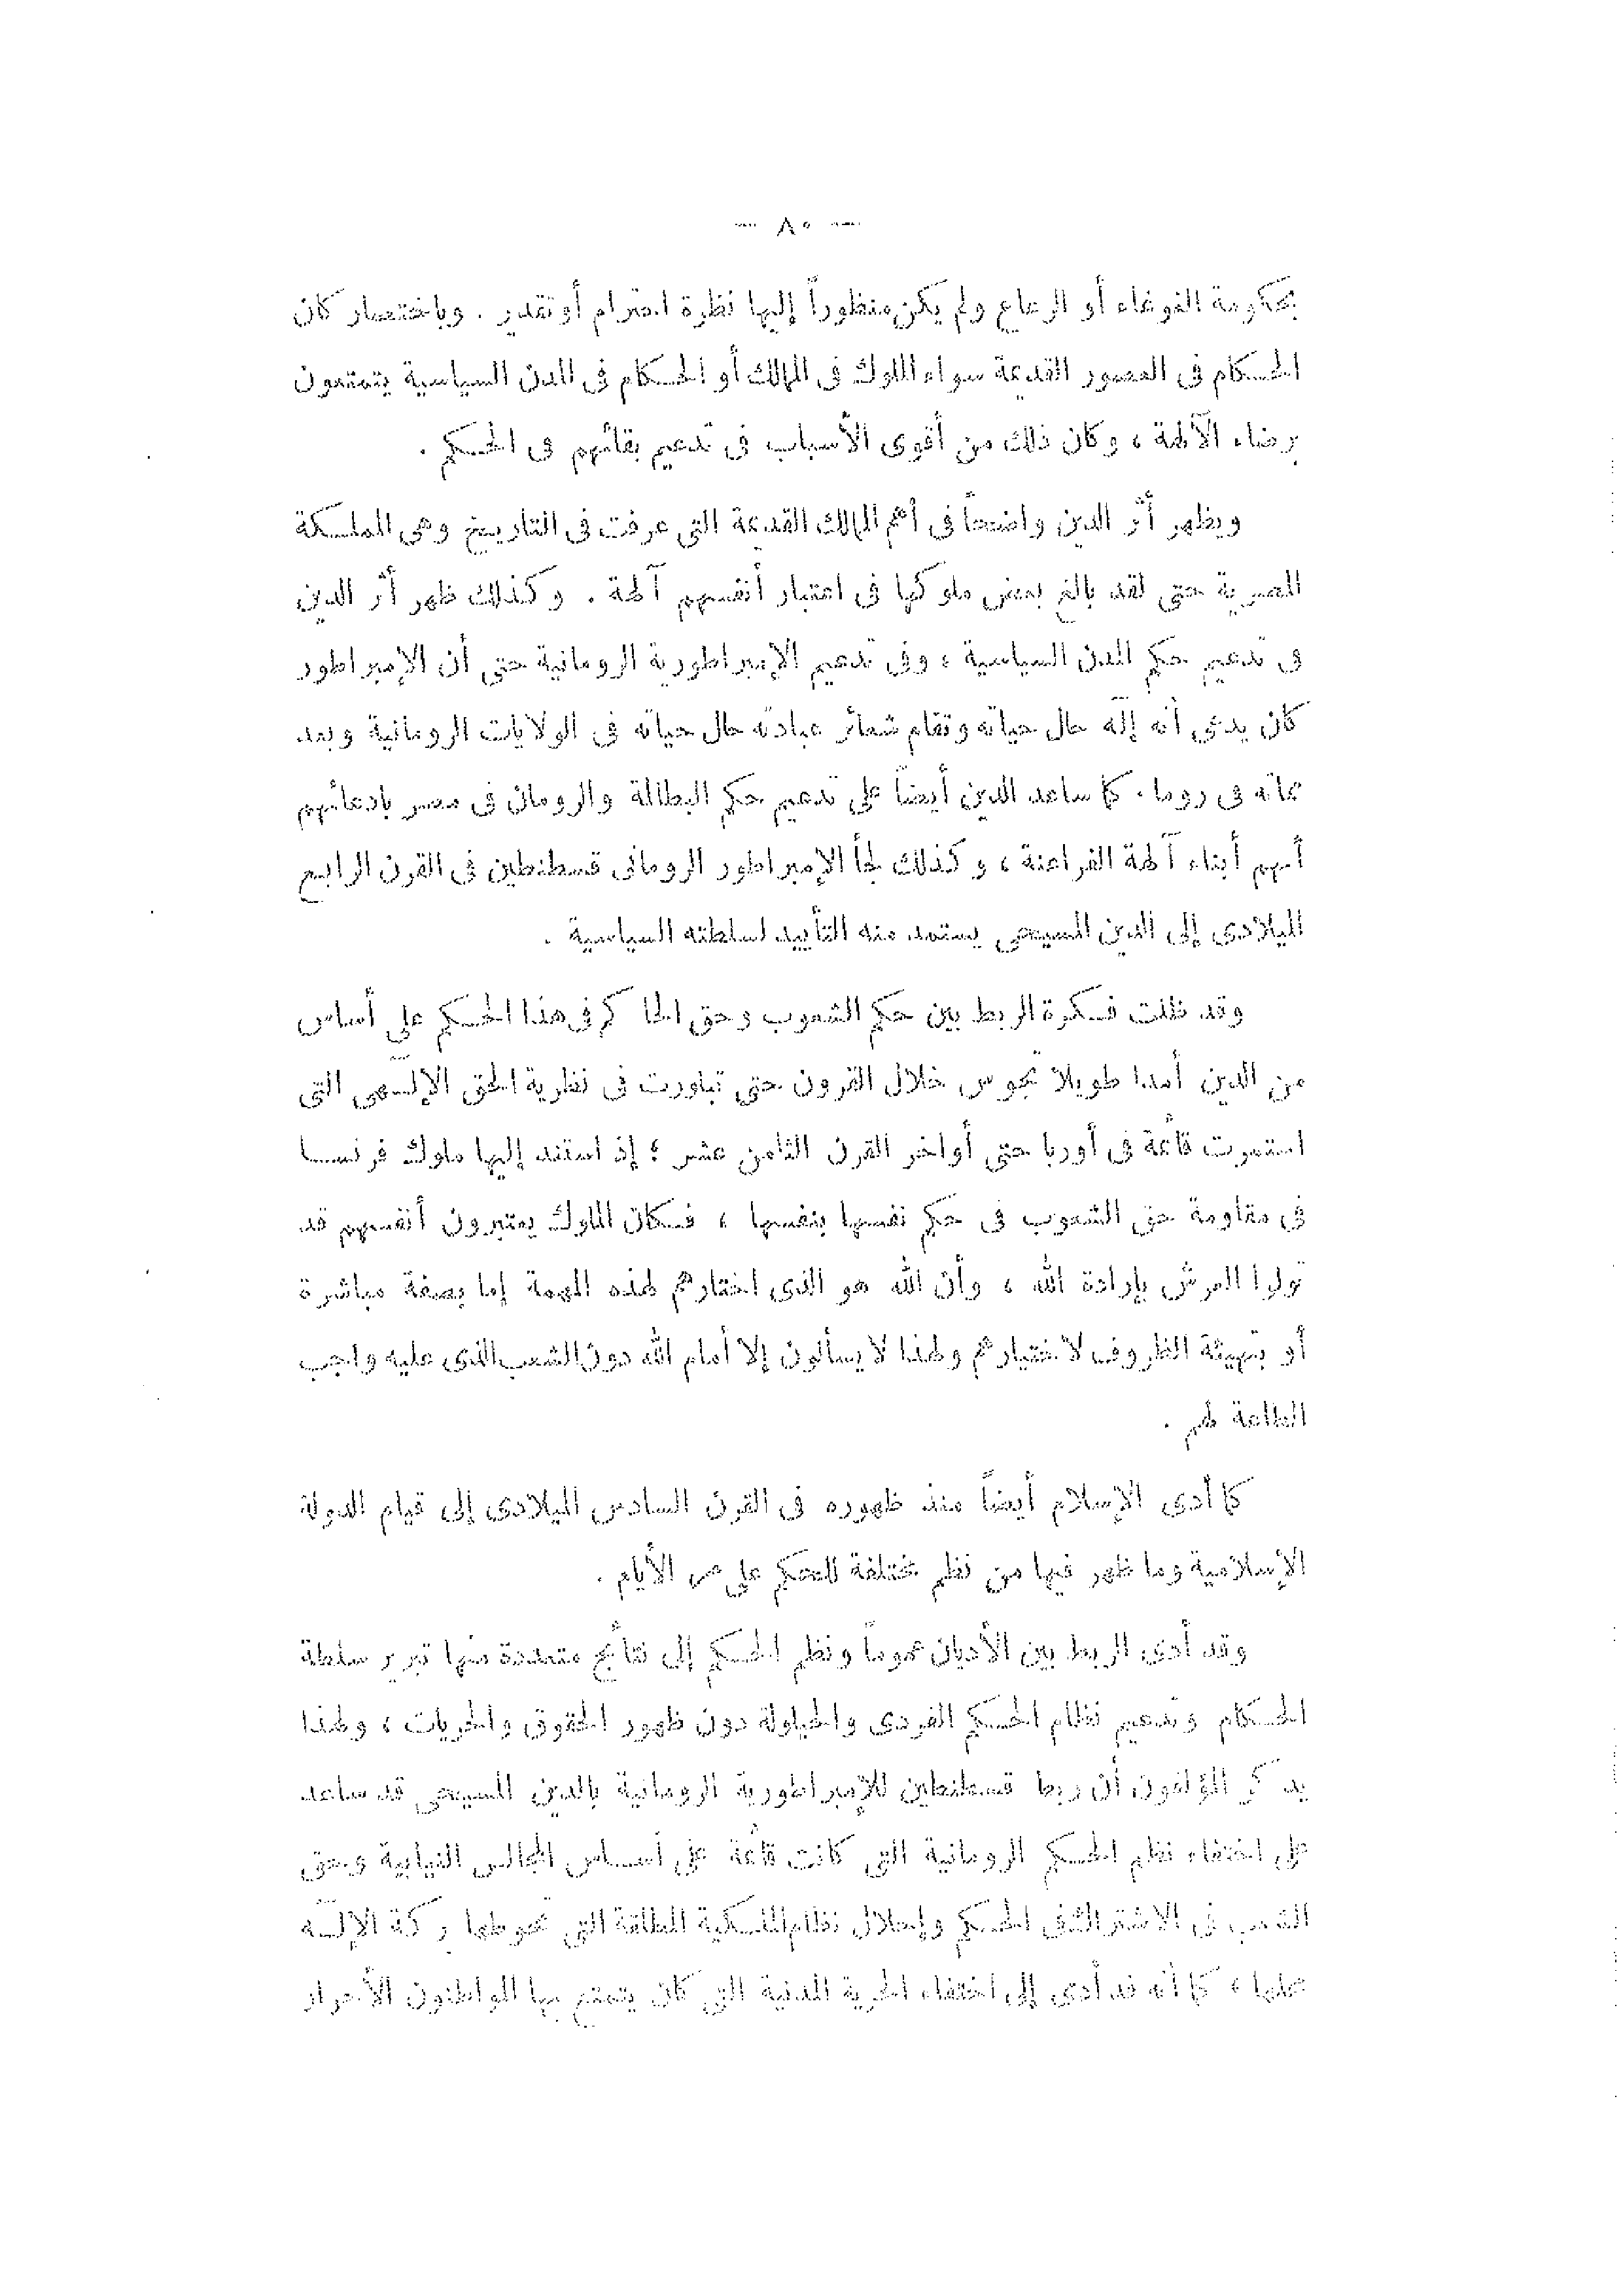 — ٨٠ —
بحكومة الغوغاء أو الرعاع ولم يكن منظوراً إليها نظرة احترام أو تقدير . وباختصار كان
الحكام فى العصور القديمة سواء الملوك فى الممالك أو الحكام فى المدن السياسية يتمتعون
برضاء الآلهة ، وكان ذلك من أقوى الأسباب فى تدعيم بقائهم فى الحكم .
ويظهر أثر الدين واضحاً فى أهم الممالك القديمة التى عرفت فى التاريخ وهى المملكة
المصرية حتى لقد بالغ بعض ملوكها فى اعتبار أنفسهم آلهة . وكذلك ظهر أثر الدين
فى تدعيم حكم المدن السياسية ، وفى تدعيم الإمبراطورية الرومانية حتى أن الإمبراطور
كان يدعى أنه إله حال حياته وتقام شعائر عبادته حال حياته فى الولايات الرومانية وبعد
مماته فى روما . كما ساعد الدين أيضاً على تدعيم حكم البطالة والرومان فى مصر بادعائهم
أنهم أبناء آلهة الفراعنة ، وكذلك لجأ الإمبراطور الرومانى قسطنطين فى القرن الرابع
الميلادى إلى الدين المسيحى يستمد منه التأييد لسلطته السياسية .
وقد ظلت فكرة الربط بين حكم الشعوب وحق الحاكم فى هذا الحكم على أساس
من الدين أمدا طويلا تجوس خلال القرون حتى تبلورت فى نظرية الحق الإلهى التى
استمرت قائمة فى أوربا حتى أواخر القرن الثامن عشر ؛ إذ استند إليها ملوك فرنسا
فى مقاومة حق الشعوب فى حكم نفسها بنفسها ، فكان الملوك يعتبرون أنفسهم قد
تولوا العرش بإرادة الله ، وأن الله هو الذى اختارهم لهذه المهمة إما بصفة مباشرة
أو بتهيئة الظروف لاختيارهم ولهذا لا يسألون إلا أمام الله دون الشعب الذى عليه واجب
الطاعة لهم .
كما أدى الإسلام أيضاً منذ ظهوره فى القرن السادس الميلادى إلى قيام الدولة
الإسلامية وما ظهر فيها من نظم مختلفة للحكم على مر الأيام .
وقد أدى الربط بين الأديان عموماً ونظم الحكم إلى نتائج متعددة منها تبرير سلطة
الحكام وتدعيم نظام الحكم الفردى والحيلولة دون ظهور الحقوق والحريات ، ولهذا
يذكر المؤلفون أن ربط قسطنطين للإمبراطورية الرومانية بالدين المسيحى قد ساعد
على اختفاء نظم الحكم الرومانية التى كانت قائمة على أساس المجالس النيابية وحق
الشعب فى الاشتراك فى الحكم وإحلال نظام الملكية المطلقة التى تحوطها بركة الإله
محلها ، كما أنه قد أدى إلى اختفاء الحرية المدنية التى كان يتمتع بها المواطنون الأحرار